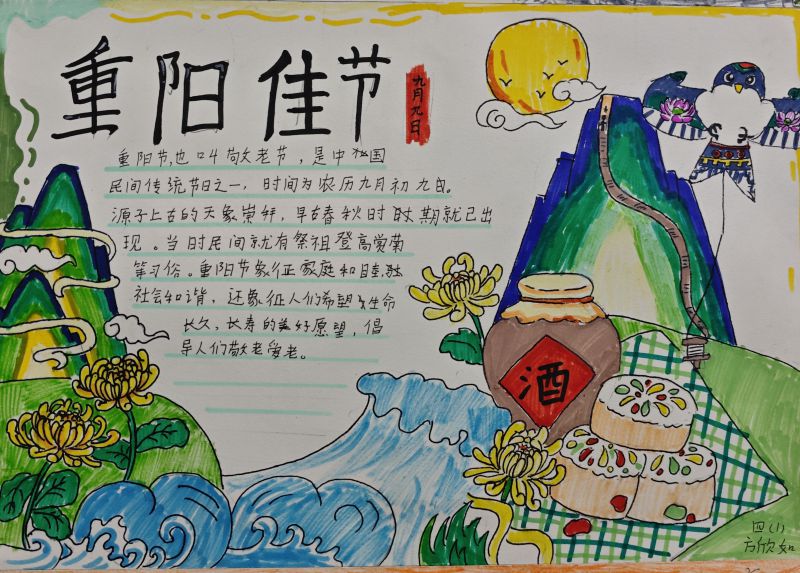 重阳佳节
九月九日
重阳节,也叫敬老节,是中国
民间传统节日之一,时间为农历九月初九日。
源于上古的天象崇拜,早古春秋时期就已出
现。当时民间就有祭祖登高赏菊
等习俗。重阳节象征家庭和睦
社会和谐,还象征人们希望生命
长久,长寿的美好愿望,倡
导人们敬老爱老。
酒
四(1)
方欣如